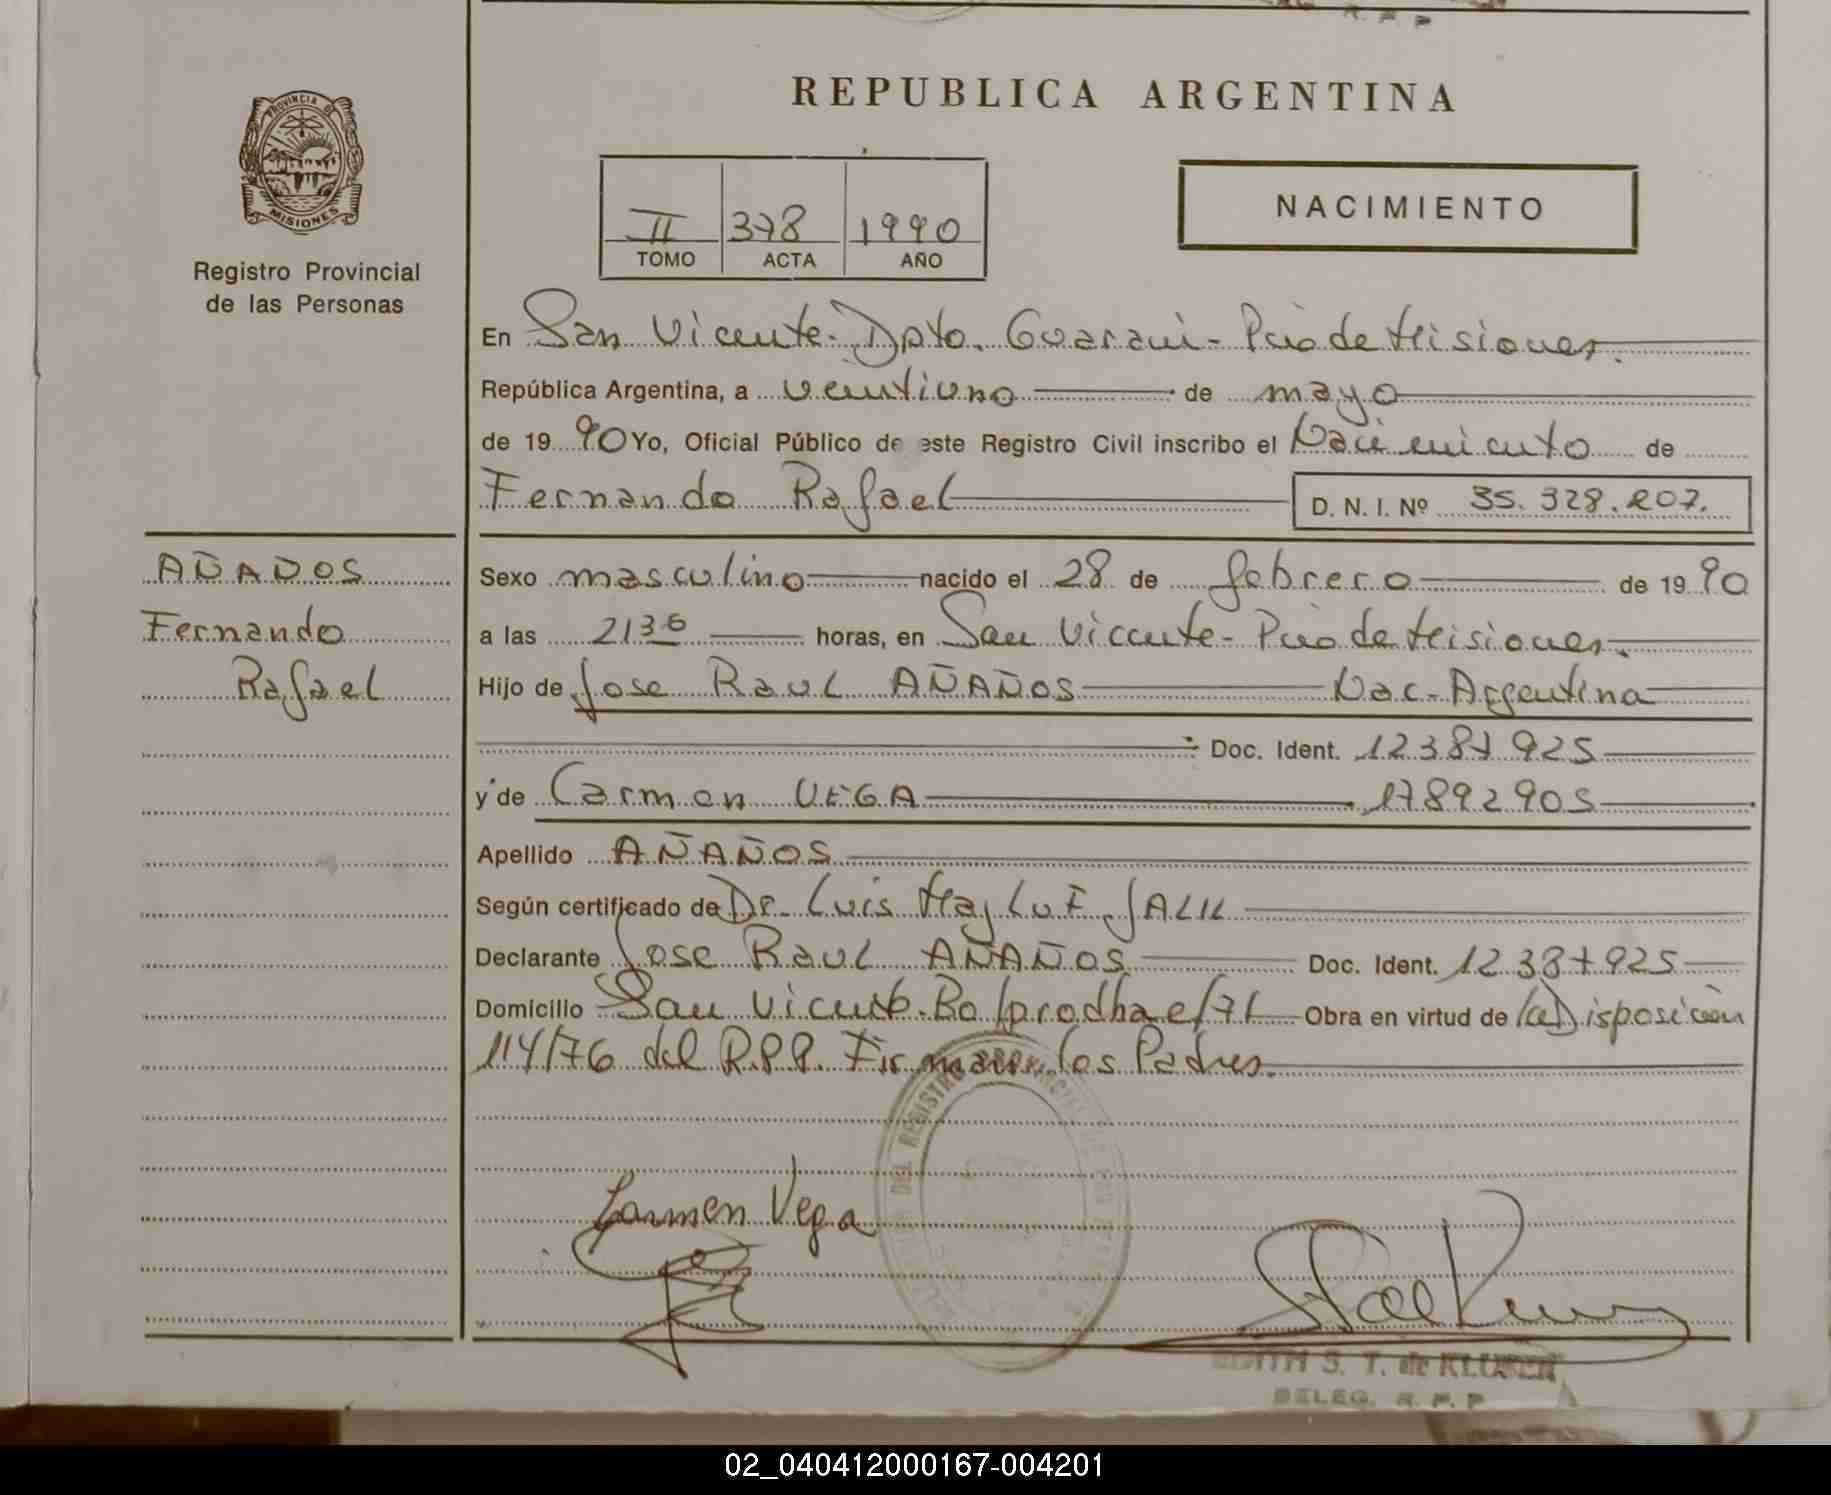 REPUBLICA ARGENTINA
PROVINCIA D
MISIONES
Registro Provincial
de las Personas
II 378 1990
TOMO ACTA AÑO
NACIMIENTO
En San Vicente- Dpto. Guarani- Pcia de Misiones.
República Argentina, a veintiuno de mayo
de 19 90 Yo, Oficial Público de este Registro Civil inscribo el Nacimiento de
Fernando Rafael D. N. I. Nº 35.328.207.
AÑAÑOS
Fernando
Rafael
Sexo masculino nacido el 28 de febrero de 19 90
a las 21 30 horas, en San Vicente- Pcia de Misiones.
Hijo de Jose Raul AÑAÑOS Nac- Argentina
Doc. Ident. 12387925
y de Carmen VEGA 17892905
Apellido AÑAÑOS
Según certificado de Dr. Luis JALIL
Declarante Jose Raul AÑAÑOS Doc. Ident. 12387925
Domicilio San Vicente- Bo Obra en virtud de la Disposición
114/76 del R.P.P. Firman los Padres.
DEL REGISTRO
Carmen Vega
S. T. de KLUSEN
DELEG. R. P. P
02_040412000167-004201